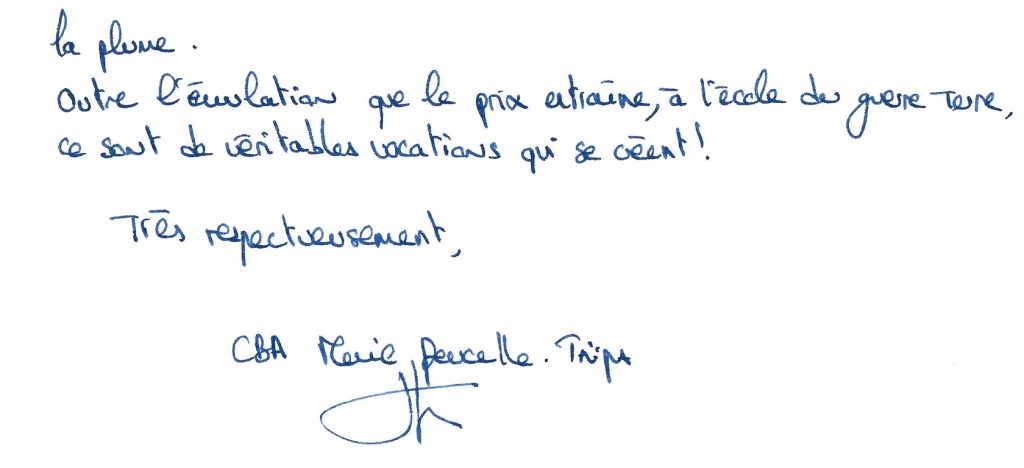 la plume.
Outre l'émulation que le prix entraîne, à l'école de guerre Terre,
ce sont de véritables vocations qui se créent !
Très respectueusement,
CBA Marie